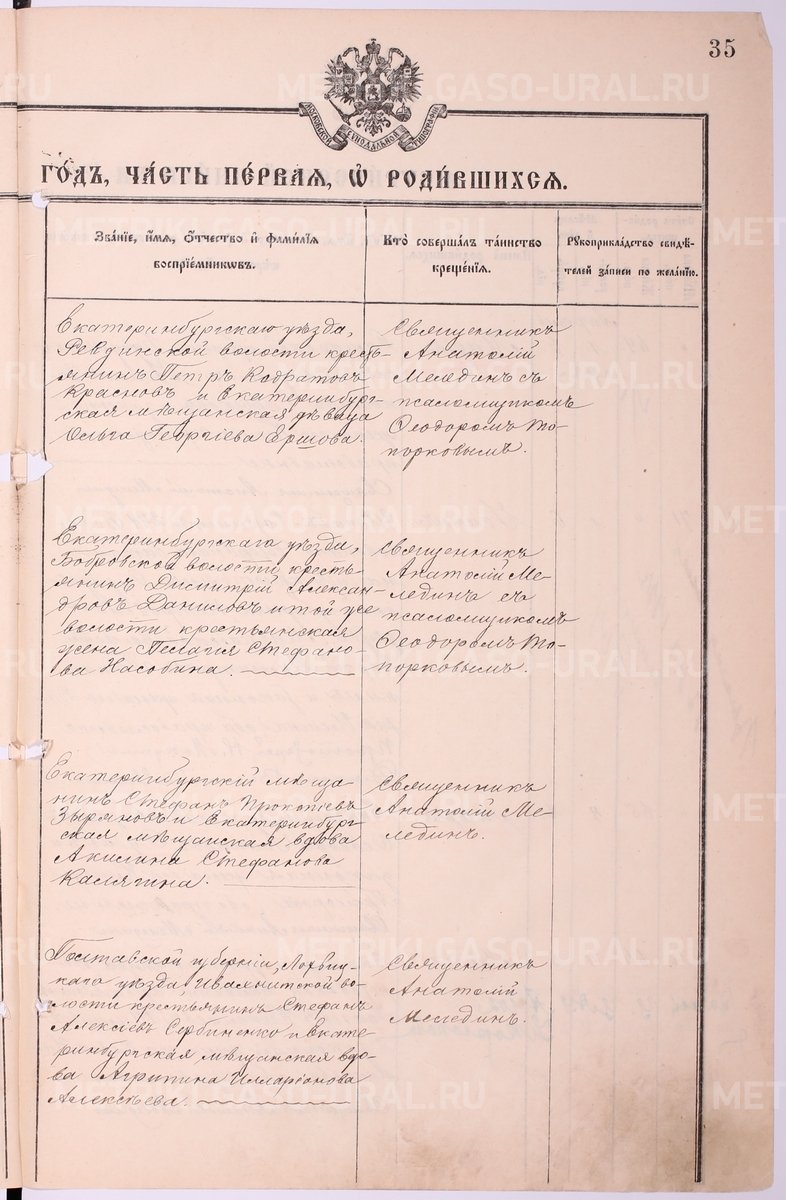 35
МОСКОВСКОЙ СѴНОДАЛЬНОЙ ТИПОГРАФІИ
ГО́ДЪ, ЧА́СТЬ ПЕ́РВАЯ, Ѡ РОДИ́ВШИХСЯ.
ЗВА́НІЕ, И́МЯ, О́ТЧЕСТВО И҆ ФАМИ́ЛІЯ
ВОСПРІЕ́МНИКѠВЪ.
КТО̀ СОВЕРША́ЛЪ ТА́ИНСТВО
КРЕЩЕ́НІЯ.
РУКОПРИКЛА́ДСТВО СВИДѢ́-
ТЕЛЕЙ ЗА́ПИСИ ПО ЖЕЛА́НІЮ.
Екатеринбургскаго уѣзда,
Ревдинской волости кресть-
янинъ Петръ Кодратовъ
Красновъ и Екатеринбург-
ская мѣщанская дѣвица
Ольга Георгіева Ершова.
Священникъ
Анатолій
Мелединъ съ
псаломщикомъ
Ѳеодоромъ То-
порковымъ.
Екатеринбургскаго уѣзда,
Бобровской волости кресть-
янинъ Димитрій Алексан-
дровъ Даниловъ и той же
волости крестьянская
жена Пелагія Стефано-
ва Насобина.
Священникъ
Анатолій Ме-
лединъ съ
псаломщикомъ
Ѳеодоромъ То-
порковымъ.
Екатеринбургскій мѣща-
нинъ Стефанъ Прокопіевъ
Зыряновъ и Екатеринбург-
ская мѣщанская вдова
Акилина Стефанова
Калягина.
Священникъ
Анатолій Ме-
лединъ.
Полтавской губерніи, Лохвиц-
каго уѣзда во-
лости крестьянинъ Стефанъ
Алексіевъ Сербиненко и Екате-
ринбургская мѣщанская вдо-
ва Агрипина Илларіонова
Алексѣева.
Священникъ
Анатолій
Мелединъ.
METRIKI.GASO-URAL.RU